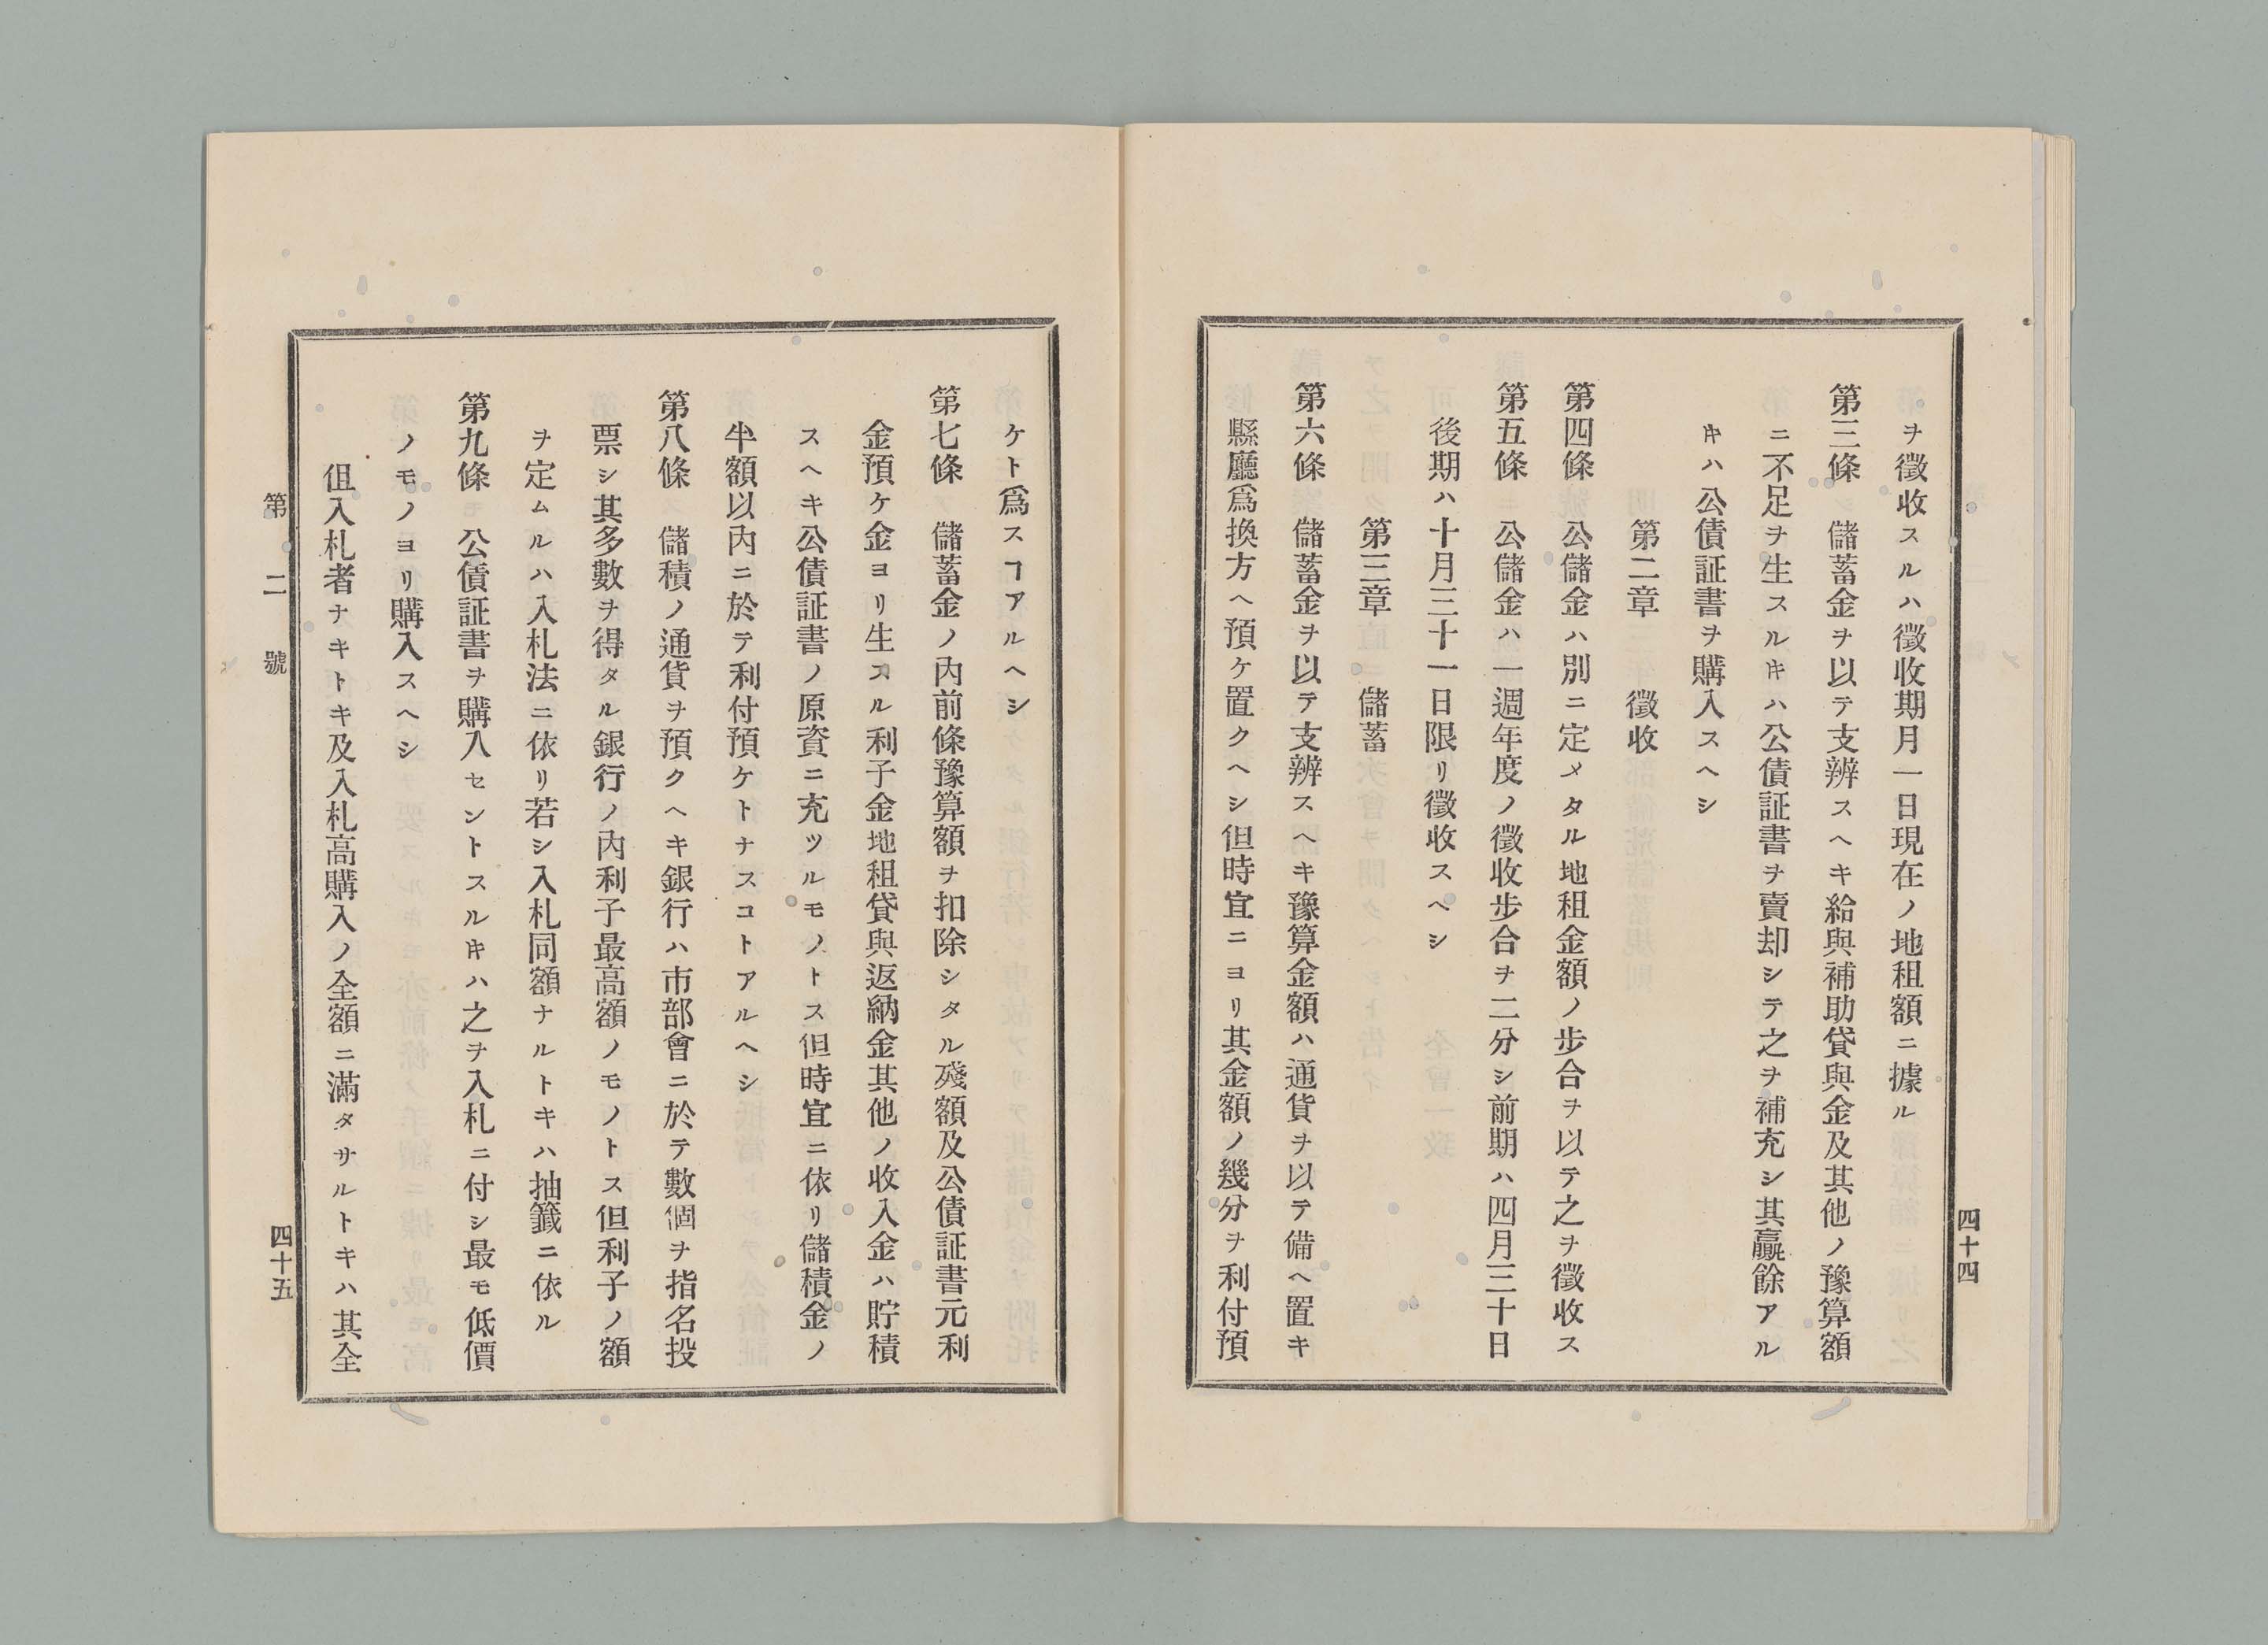 ヲ徵收スルハ徵收期月一日現在ノ地租額ニ據ル
第三條　儲蓄金ヲ以テ支辨スヘキ給與補助貸與金及其他ノ豫算額
ニ不足ヲ生スルキハ公債証書ヲ賣却シテ之ヲ補充シ其贏餘アル
キハ公債証書ヲ購入スヘシ
第二章　徵收
第四條　公儲金ハ別ニ定メタル地租金額ノ步合ヲ以テ之ヲ徵收ス
第五條　公儲金ハ一週年度ノ徵收步合ヲ二分シ前期ハ四月三十日
後期ハ十月三十一日限リ徵收スヘシ
第三章　儲蓄
第六條　儲蓄金ヲ以テ支辨スヘキ豫算金額ハ通貨ヲ以テ備ヘ置キ
縣廳爲換方ヘ預ケ置クヘシ但時宜ニヨリ其金額ノ幾分ヲ利付預
四十四
ケト爲スヿアルヘシ
第七條　儲蓄金ノ內前條豫算額ヲ扣除シタル殘額及公債証書元利
金預ケ金ヨリ生スル利子金地租貸與返納金其他ノ收入金ハ貯積
スヘキ公債証書ノ原資ニ充ツルモノトス但時宜ニ依リ儲積金ノ
半額以內ニ於テ利付預ケトナスコトアルヘシ
第八條　儲積ノ通貨ヲ預クヘキ銀行ハ市部會ニ於テ數個ヲ指名投
票シ其多數ヲ得タル銀行ノ內利子最高額ノモノトス但利子ノ額
ヲ定ムルハ入札法ニ依リ若シ入札同額ナルトキハ抽籤ニ依ル
第九條　公債証書ヲ購入セントスルキハ之ヲ入札ニ付シ最モ低價
ノモノヨリ購入スヘシ
伹入札者ナキトキ及入札高購入ノ全額ニ滿タサルトキハ其全
第二號
四十五